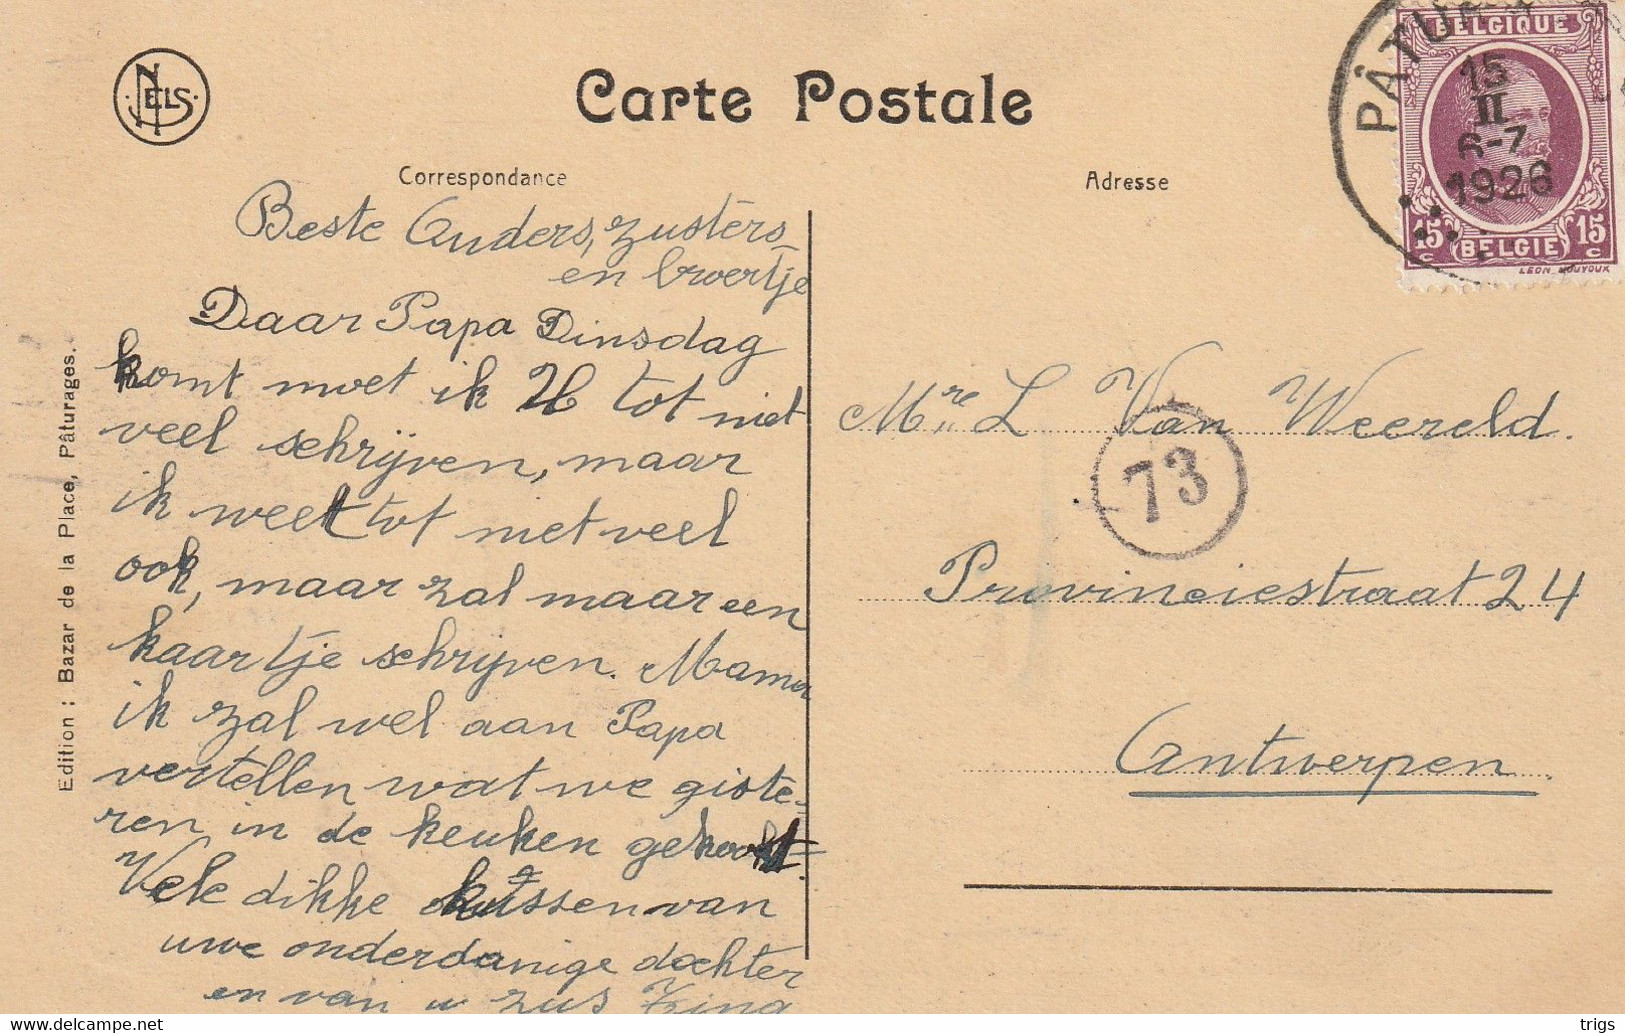 NELS
Carte Postale
Correspondance
Adresse
Beste Ouders, zusters
en broertje
Daar Papa Dinsdag
komt moet ik U tot niet
veel schrijven, maar
ik weet tot niet veel
ook, maar zal maar een
kaartje schrijven. Mama
ik zal wel aan Papa
vertellen wat we giste-
ren in de keuken gekookt.
Vele dikke kussen van
uwe onderdanige dochter
en van u zus
Edition : Bazar de la Place, Pâturages.
BELGIQUE
15 c BELGIE 15 c
15
II
6-7
1926
Mre L Van Weereld.
73
Provinciestraat 24
Antwerpen
delcampe.net
trigs